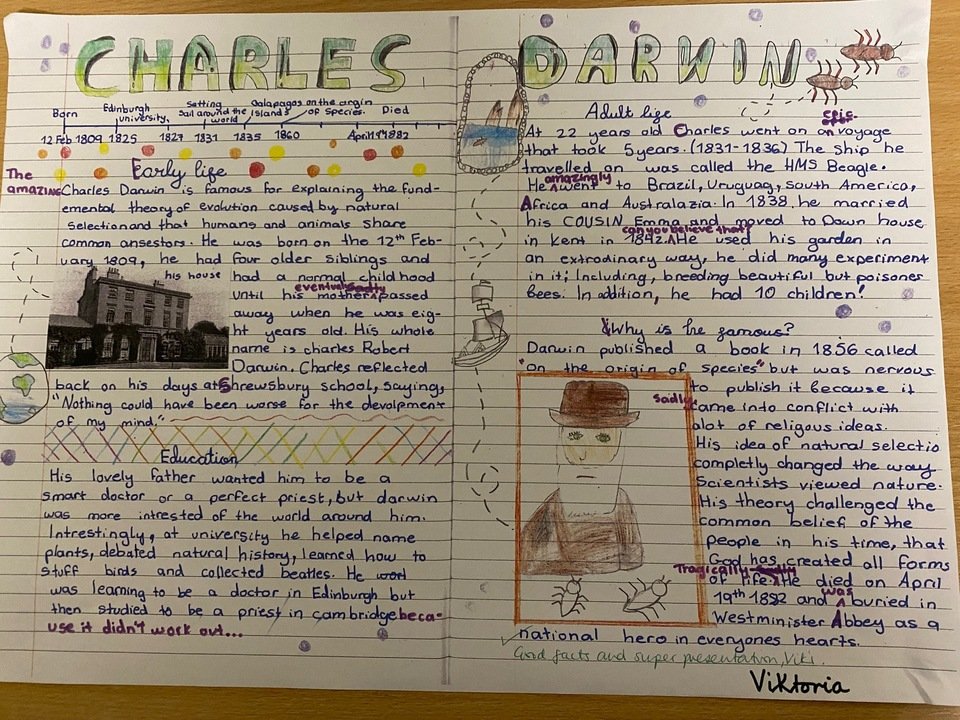 CHARLES DARWIN
Born
Edinburgh university,
Setting Sail around the world
Galapagos Islands
on the orgin of species.
Died
12 Feb 1809
1825
1827
1831
1835
1860
Early life
The amazing Charles Darwin is famous for explaining the fund-
emental theory of evolution caused by natural
selection and that humans and animals share
common ansestors. He was born on the 12th Feb-
uary 1809, he had four older siblings and
his house
had a normal childhood
until his mother eventually sadly passed
away when he was eig-
ht years old. His whole
name is charles Robert
Darwin. Charles reflected
back on his days at Shrewsbury school, saying,
"Nothing could have been worse for the devolpment
of my mind."
Education
His lovely father wanted him to be a
smart doctor or a perfect priest, but darwin
was more intrested of the world around him.
Intrestingly, at university he helped name
plants, debated natural history, learned how to
stuff birds and collected beatles. He
was learning to be a doctor in Edinburgh but
then studied to be a priest in cambridge beca-
use it didn't work out...
Adult life
At 22 years old Charles went on an epic voyage
that took 5 years. (1831-1836) The ship he
travelled on was called the HMS Beagle.
He amazingly went to Brazil, Uruguay, South America,
Africa and Australazia. In 1838, he married
his COUSIN Emma and moved to Down house
in Kent in 1842. can you believe that? He used his garden in
an extrodinary way, he did many experiment
in it; Including, breeding beautiful but poisones
Bees. In addition, he had 10 children!
Why is he famous?
Darwin published a book in 1856 called
"on the origin of species" but was nervous
to publish it because it
Saidly came into conflict with
alot of religous ideas.
His idea of natural selectio
completly changed the way
Scientists viewed nature.
His theory challenged the
common belief of the
people in his time, that
God has created all forms
of life. Tragically sadly He died on April
19th 1882 and was buried in
Westminister Abbey as a
national hero in everyones hearts.
Good facts and super presentation, Viki.
Viktoria